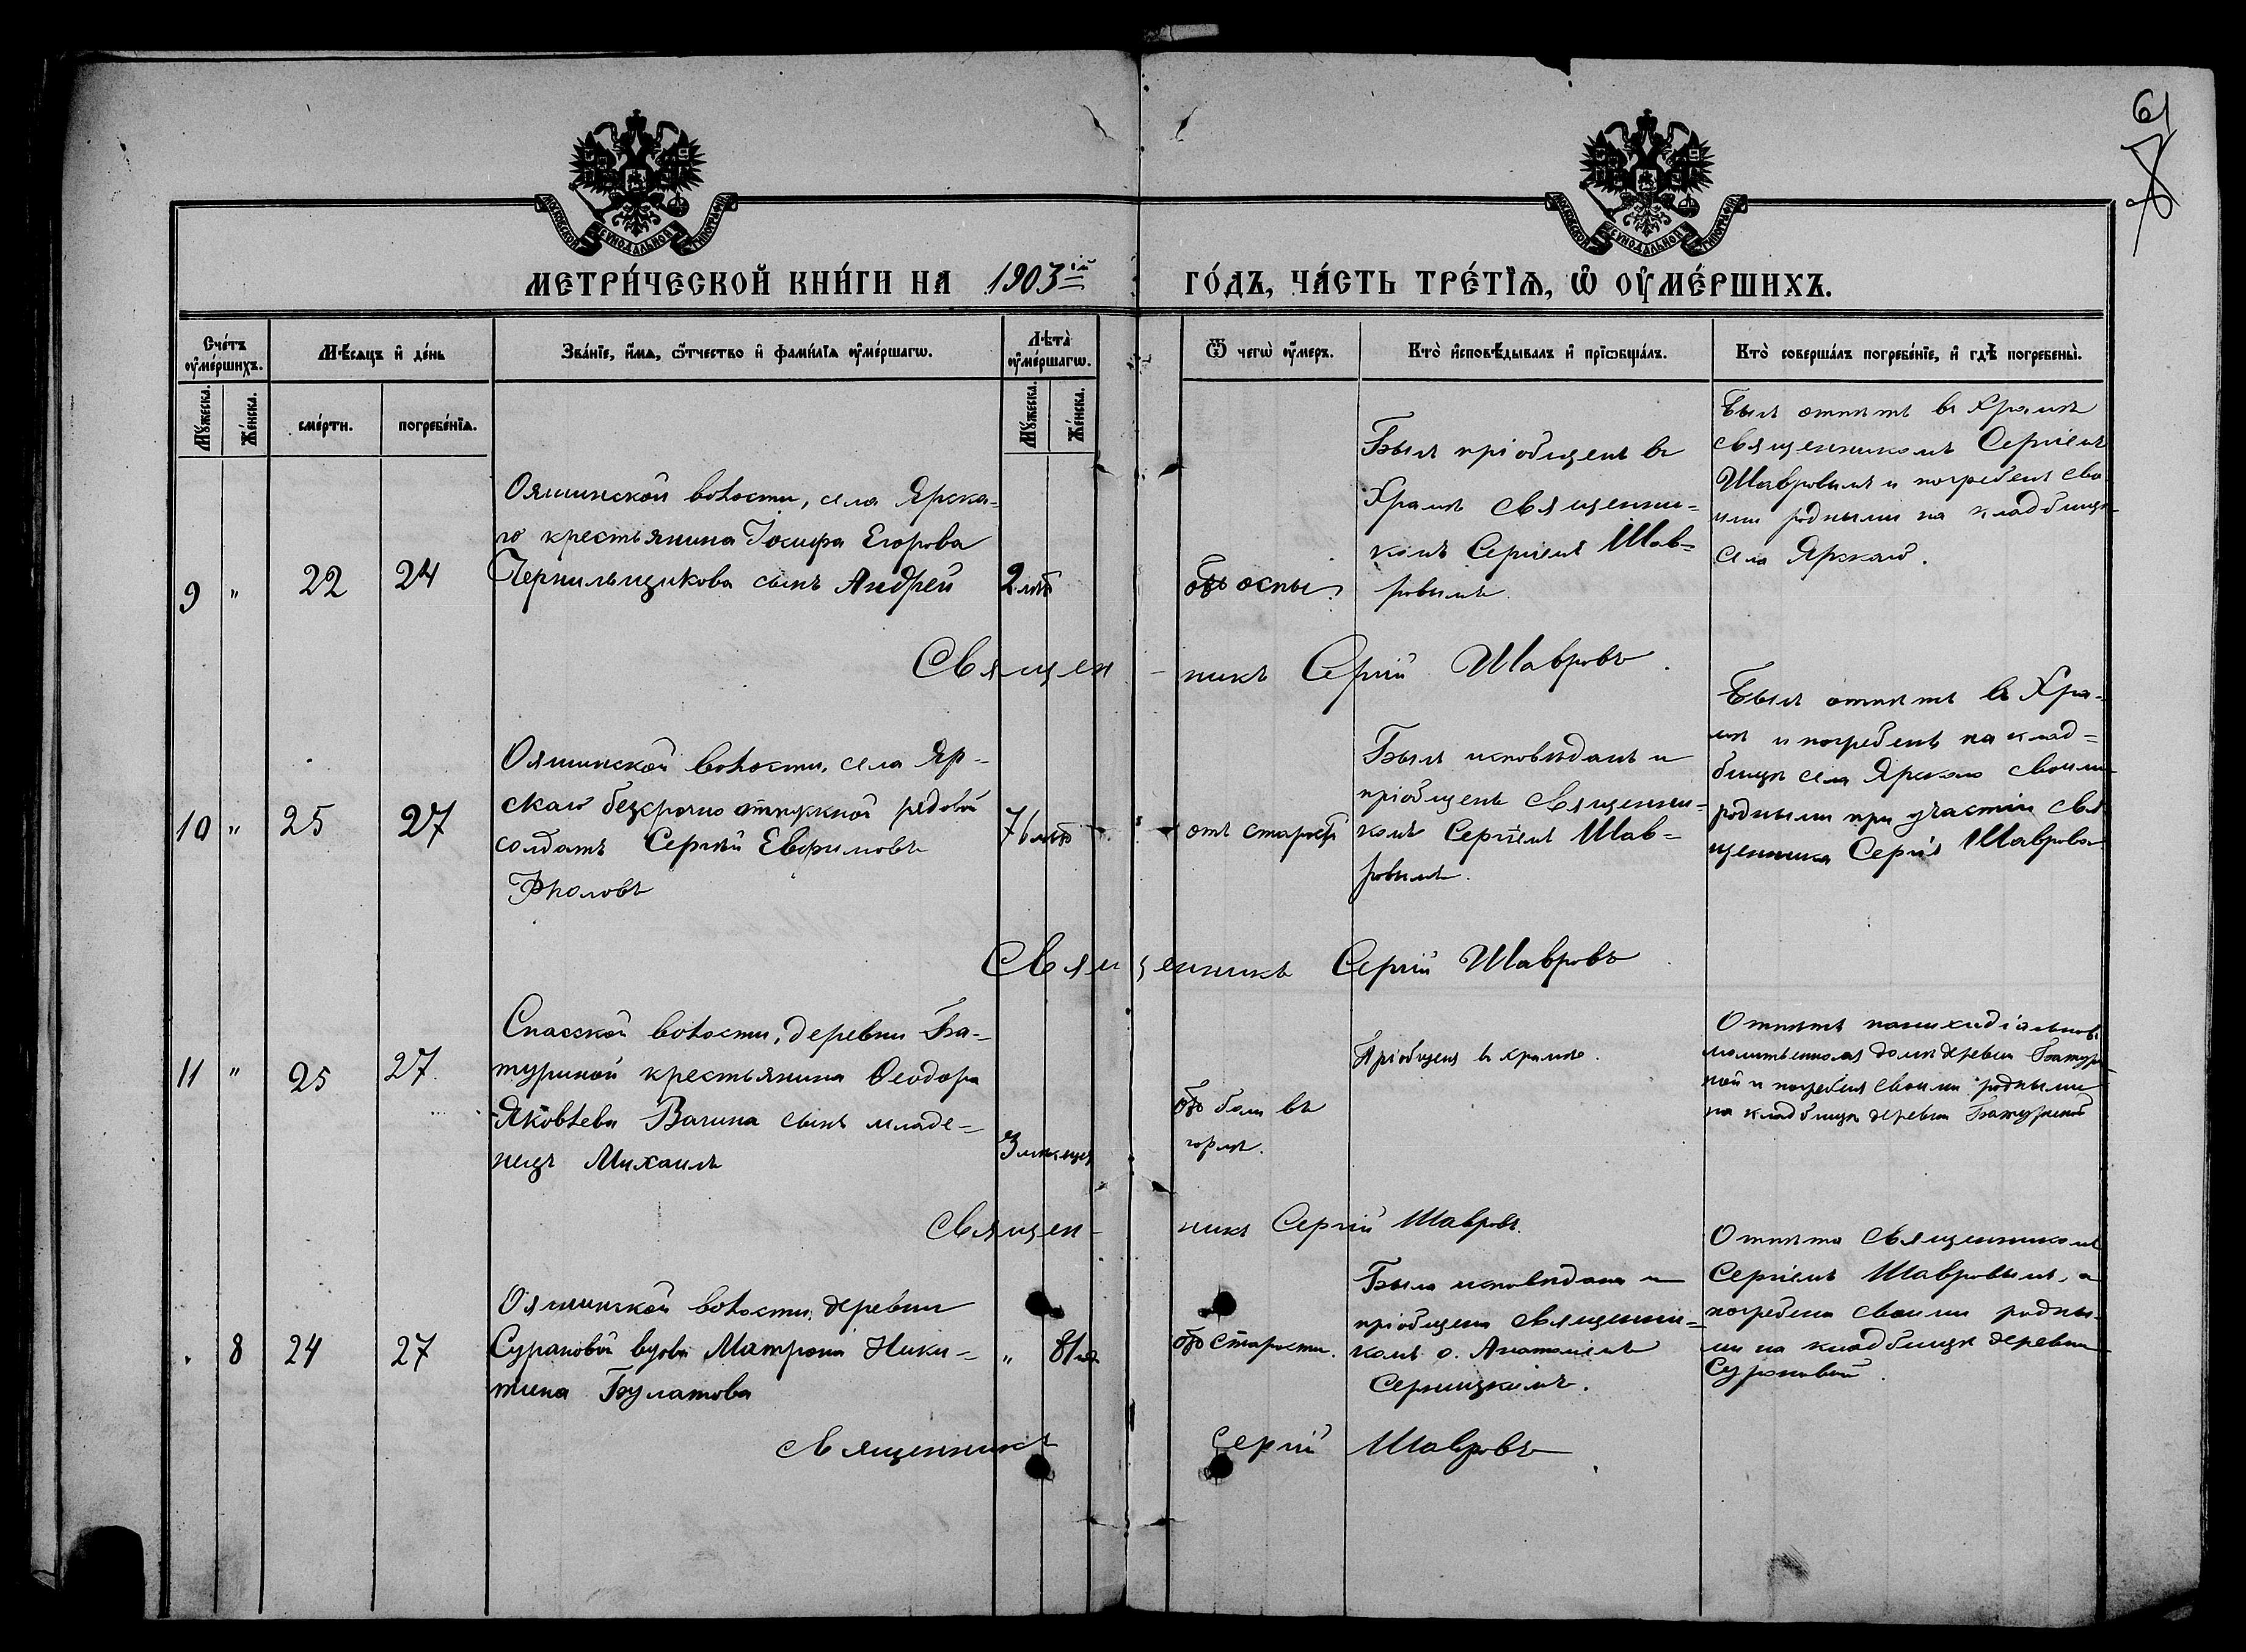 61
МОСКОВСКОЙ СУНОДАЛЬНОЙ ТИПОГРАФІИ
МОСКОВСКОЙ СУНОДАЛЬНОЙ ТИПОГРАФІИ
МЕТРИ́ЧЕСКОЙ КНИ́ГИ НА 1903ій ГО́ДЪ, ЧА́СТЬ ТРЕ́ТІѦ, Ѡ ОУ҆МЕ́РШИХЪ.
Сче́тъ оу҆ме́ршихъ.
Мѣ́сяцъ и де́нь
Зва́нїе, и҆́мѧ, ѻ҆́тчество и҆ фами́лїѧ оу҆ме́ршагѡ.
Лѣта̀ оу҆ме́ршагѡ.
Ѿ чегѡ̀ оу҆́меръ.
Кто̀ и҆сповѣ́дывалъ и҆ прїѡбща́лъ.
Кто̀ соверша́лъ погребе́нїе, и҆ гдѣ̀ погребены̀.
Му́жеска.
Же́нска.
сме́рти.
погребе́нїѧ.
Му́жеска.
Же́нска.
9 " 22 24
Ояшинской волости, села Ярска-
го крестьянина Іосифа Егорова
Чернильщикова сынъ Андрей
2 лѣтъ
отъ оспы
Былъ пріобщенъ въ
Храмѣ священни-
комъ Сергіемъ Шав-
ровымъ.
Былъ отпѣтъ въ Храмѣ
священникомъ Сергіемъ
Шавровымъ и погребенъ сво
ими родными на кладбищѣ
села Ярскаго.
Священ-никъ Сергій Шавровъ.
10 " 25 27
Ояшинской волости, села Яр-
скаго безсрочно отпускной рядовой
солдатъ Сергѣй Евфимовъ
Фроловъ
76 лѣтъ
отъ старости
Былъ исповѣданъ и
пріобщенъ священни-
комъ Сергіемъ Шав-
ровымъ.
Былъ отпѣтъ въ Хра-
мѣ и погребенъ на клад-
бищѣ села Ярскаго своими
родными при участіи свя
щенника Сергія Шаврова
Священникъ Сергій Шавровъ
11 " 25 27
Спасской волости, деревни Ба-
туриной крестьянина Ѳеодора
Яковлева Вагина сынъ младе-
нецъ Михаилъ
3 мѣсяцев
отъ боли въ
горлѣ.
Пріобщенъ въ храмѣ.
Отпѣтъ въ
молитвенномъ домѣ деревни Батури
ной и погребенъ своими родными
на кладбищѣ деревни Батуриной
Священ-никъ Сергій Шавровъ.
8 24 27
Ояшинской волости, деревни
Сурановой вдова Матрона Ники-
тина Булатова
" 81
отъ старости.
Была исповѣдана и
пріобщена священни-
комъ о. Анатоліемъ
Серницкимъ.
Отпѣта священникомъ
Сергіемъ Шавровымъ, а
погребена своими родны-
ми на кладбищѣ деревни
Сурановой.
Священникъ Сергій Шавровъ